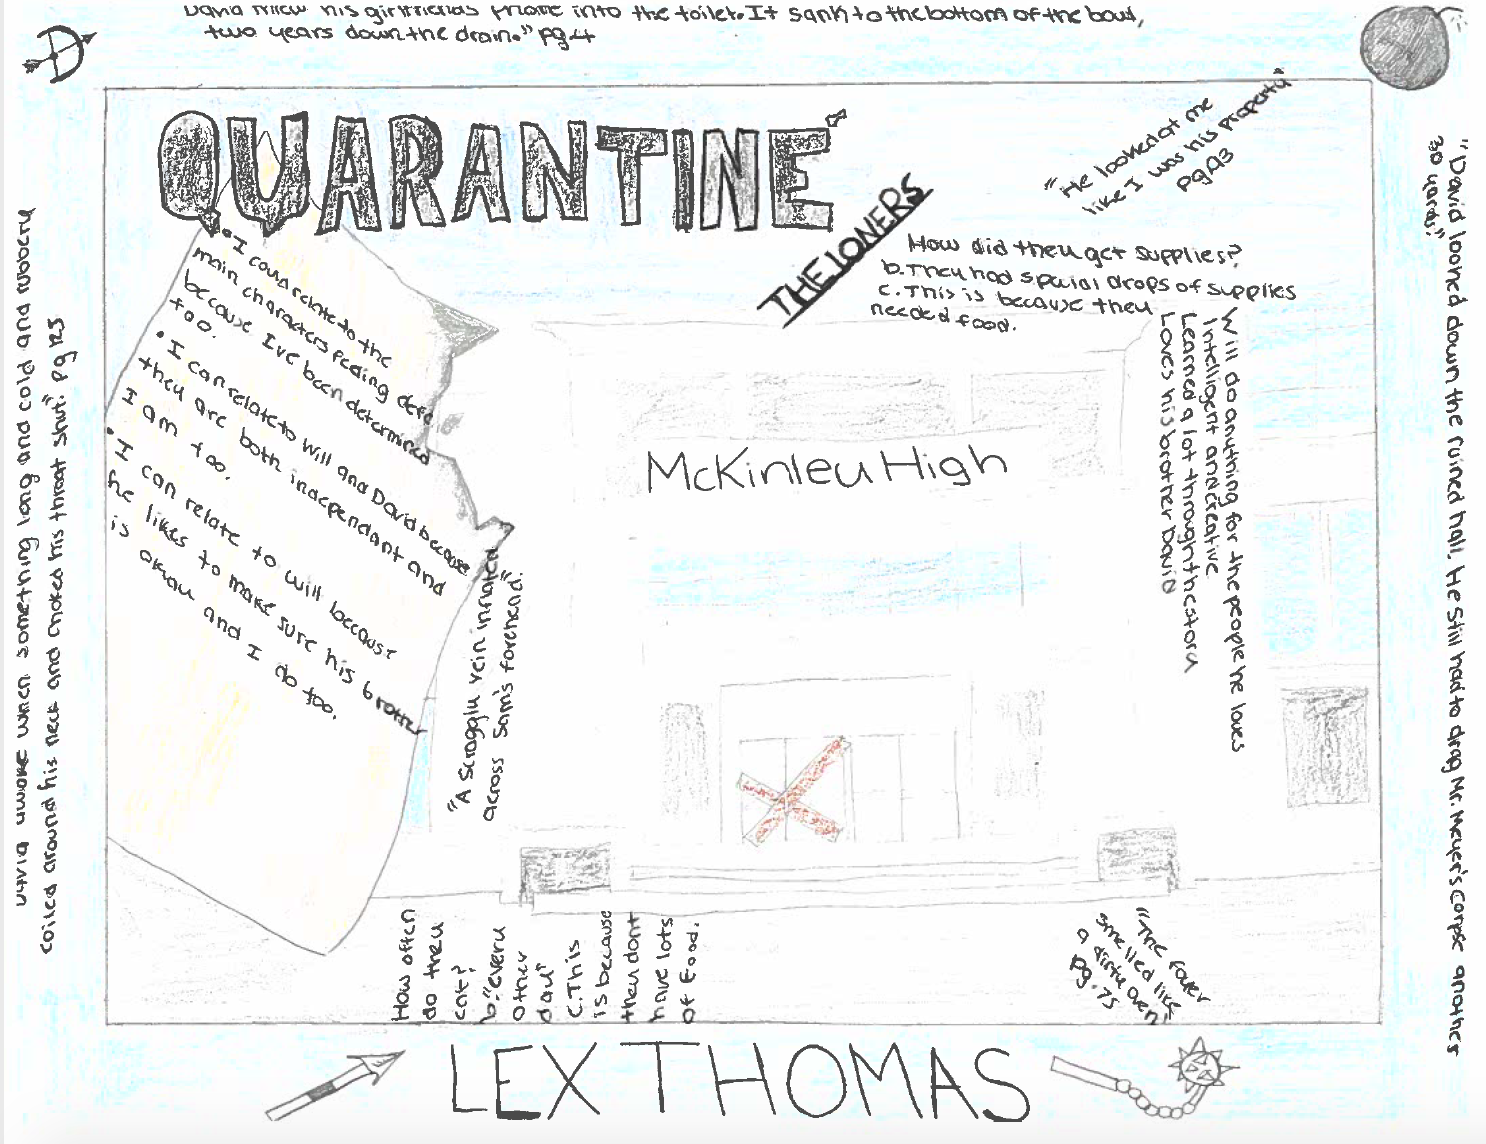 his girlfriends phone into the toilet. It sank to the bottom of the bowl,
two years down the drain." pg 4
QUARANTINE
THE LONERS
"He looked at me
like I was his property"
pg 93
How did they get supplies?
b. They had special drops of supplies
c. This is because they
needed food.
• I could relate to the
main characters feeling
because I've been determined
too.
• I can relate to Will and David because
they are both independant and
I am too.
• I can relate to will because
he likes to make sure his brother
is okay and I do too.
McKinley High
Will do anything for the people he loves
Intelligent and creative
Learned a lot through the story
Loves his brother David
"A scraggly vein inflated
across Sam's forehead".
How often
do they
eat?
b. "every
other
day"
c. This
is because
they dont
have lots
of Food.
"The foyer
smelled like
a dirty oven"
pg. 75
David awoke when something long and cold and rubbery
coiled around his neck and choked his throat shut." pg 125
"David looned down the ruined hall. He still had to drag Mr. Meyer's Corpse another
30 yards."
LEX THOMAS